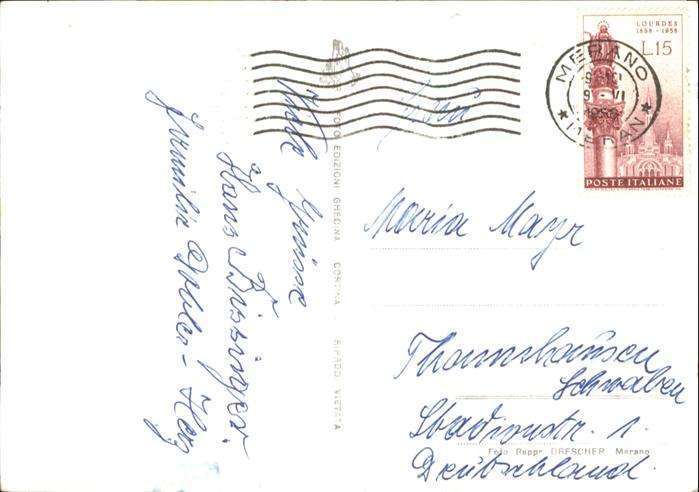 Viele Grüsse
Hans Bissinger.
Familie
FOTO EDIZIONI GHEDINA - CORTINA - RIPROD. VIETATA
LOURDES
1858 - 1958
L.15
POSTE ITALIANE
MERANO
9 VI
MERAN
Maria Mayr
Thannhausen
Schwaben
Stadionstr. 1.
Foto Reppr. DRESCHER Merano
Deutschland.